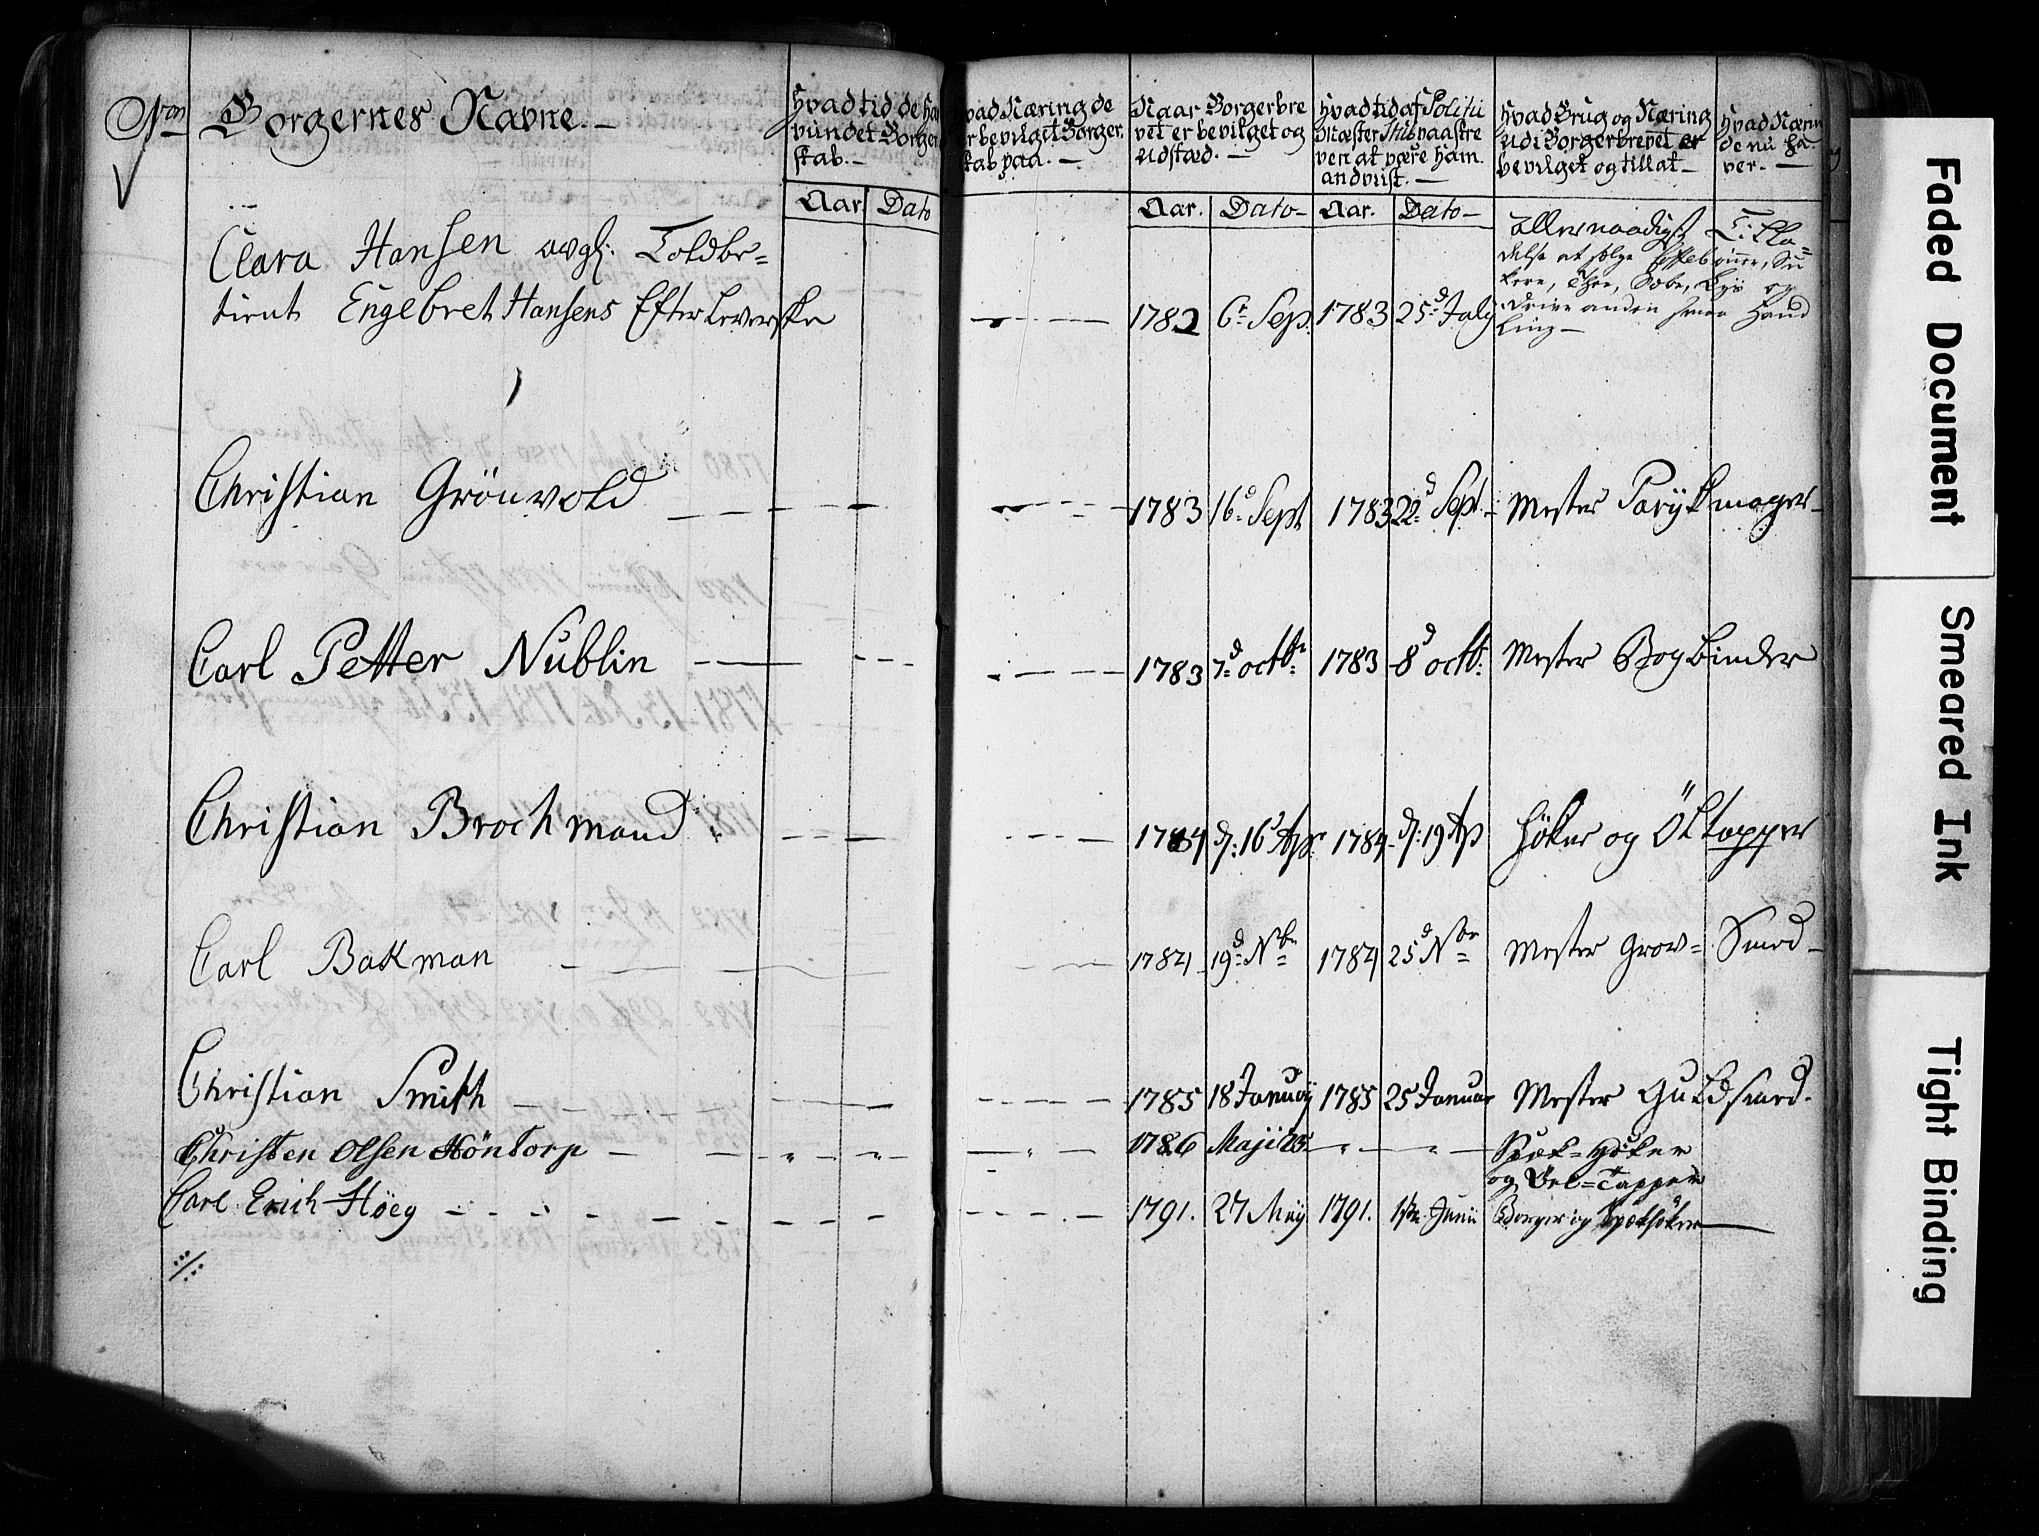 Nro
Borgernes Navne. –
Hvad tid de har
vundet Borger
skab. –
Aar Dato
vad Næring de
er bevilget Borger
skab paa. –
Naar Borgerbre
vet er bevilget og
udstæd. –
Aar. Dato –
Hvad tid af Politi
Mæster Stib paaskre
ven at være ham
andviist. –
Aar. Dato –
Hvad Brug og Næring
udi Borgerbrevet er
bevilget og tillat –
Hvad Nærin
de nu ha
ver. –
Clara Hansen avgl: Toldbe=
tient Engebret Hansens Efterleverske 1782 6te Sep. 1783 25d July
allernaadigst Tilla=
delse at sælge Coffebönner, Su
kere, Thee, Sæbe, Lys og
drive anden smaa Hand
ling –
Christian Grönvold 1783 16d Sept 1783 22d Sept. Mester Parykmager –
Carl Petter Nublin 1783 7d octbr 1783 8d octb. Mester Bogbinder
Christian Brochmand 1784 d: 16 Apr 1784 d: 19 Ap Höker og Öltapper
Carl Bakman 1784 19d Nbr 1784 25d Nbr Mester Grov= Smed –
Christian Smith 1785 18 Januarij 1785 25 Januar Mester Guldsmed.
Christen Olsen Höntorp 1786 Maji 23 Spæk-Höker
og Øel=Tapper
Carl Erich Høeg 1791. 27 Maij 1791. 1ste Junii Borger og Spækhöker
Faded Document
Smeared Ink
Tight Binding